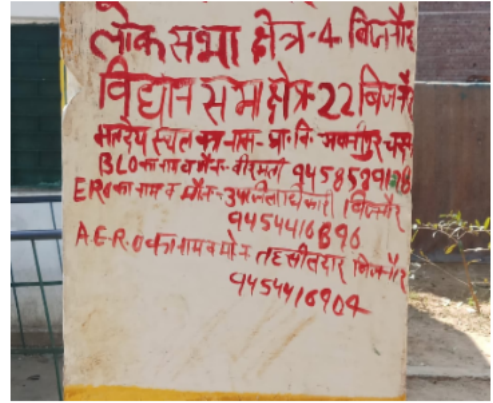 लोक सभा क्षेत्र-4 बिजनौर
विधान सभा क्षेत्र-22 बिजनौर
मतदेय स्थल का नाम- प्रा. वि.
BLO का नाम व मो.न.- वीरमती
ERO का नाम व मो.न.- उपजिलाधिकारी बिजनौर
9454416896
A.E.R.O का नाम व मो.न. तहसीलदार बिजनौर
9454416904